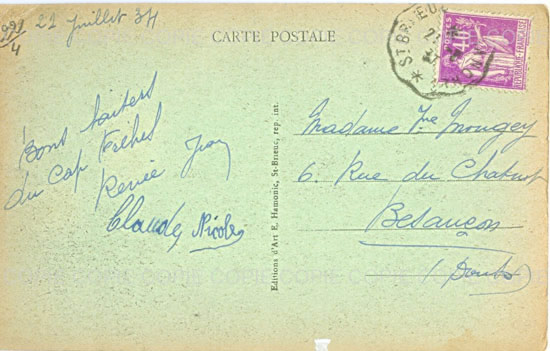 991
4
22 juillet 34
CARTE POSTALE
ST BRIEUC
40
POSTES
REPUBLIQUE FRANÇAISE
Bons baisers
du Cap Fréhel
Renée Jean
Claude, Nicole
Editions d'Art E. Hamonic, St-Brieuc, rep. int.
Madame Vve Mougey
6. Rue du Chateur
Besançon
(Doubs)